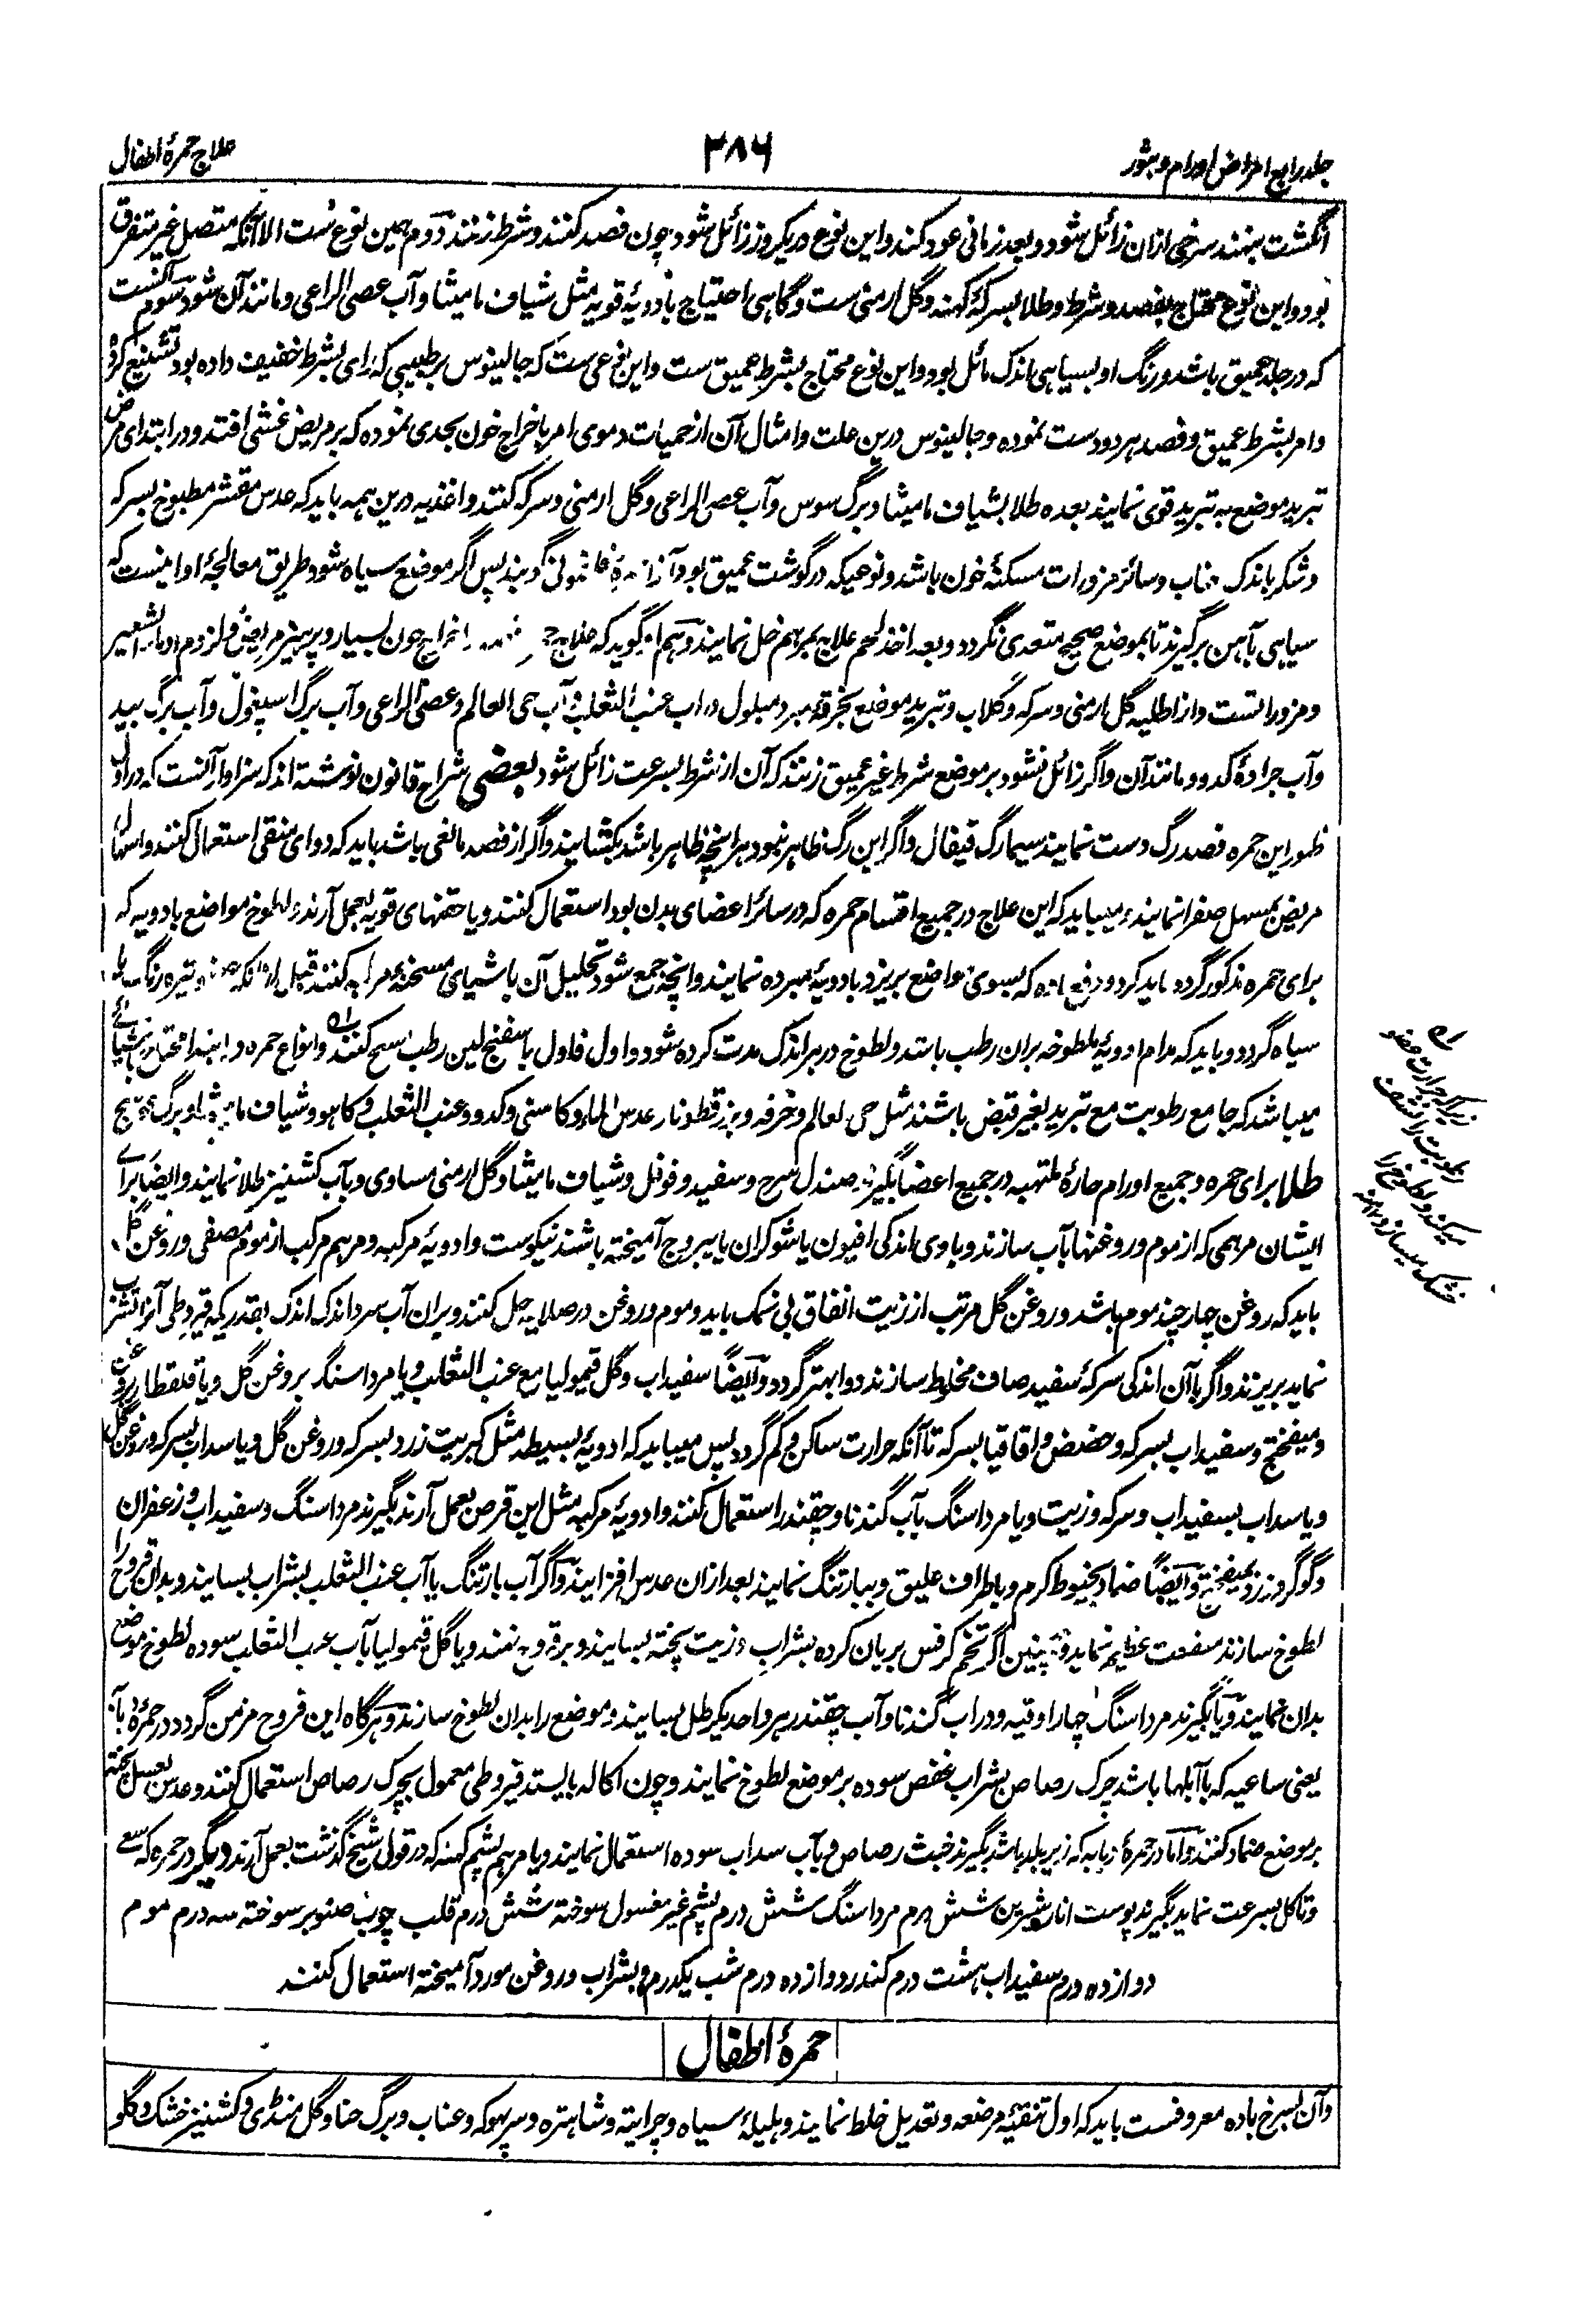 جلد رابع امراض اورام و بثور
۳۸۶
علاج حمرهٔ اطفال
انگشت بنهند سرخی ازان زائل شود و بعد زمانی عود کند و این نوع در یکروز زائل شود چون فصد کنند و شرط زنند دوم همین نوع ست الا آنکه متصل غیر متفرق
بود و این نوع محتاج بفصد و شرط و طلا بسرکهٔ کهنه و گل ارمنی ست و گاهی احتیاج بادویهٔ قویه مثل شیاف مامیثا و آب عصی الراعی و مانند آن شود سوم آنست
که در جلد عمیق باشد و رنگ او بسیاهی اندک مائل بود و این نوع محتاج بشرط عمیق ست و این نوعی ست که جالینوس بر طبیبی که رای بشرط خفیف داده بود تشنیع کرد
و امر بشرط عمیق و فصد هر دو دست نموده و جالینوس درین علت و امثال آن از حمیات دموی امر باخراج خون بحدی نموده که بر مریض غشی افتد و در ابتدای مرض
تبرید موضع به تبرید قوی نمایند بعده طلا بشیاف مامیثا و برگ سوس و آب عصی الراعی و گل ارمنی و سرکه کنند و اغذیه درین همه باید که عدس مقشر مطبوخ بسرکه
و شکر باندک عناب و سائر مزورات مسکنهٔ خون باشد و نوعیکه در گوشت عمیق بود گویند پس اگر موضع سیاه شود طریق معالجهٔ او اینست که
سیاهی بآهن برگیرند تا بموضع صحیح متعدی نگردد و بعد اخذ لحم علاج بمرهم خل نمایند و هم او گوید که علاج اخراج خون بسیار و پرهیز مریض و لزوم او ماء الشعیر
و مزورا تست و از اطلیه گل ارمنی و سرکه و گلاب و تبرید موضع بخرقهٔ مبرد مبلول در آب عنب الثعلب و آب حی العالم و عصی الراعی و آب برگ اسپغول و آب برگ بید
و آب جرادهٔ کدو و مانند آن و اگر زائل نشود بر موضع شرط غیر عمیق زنند که آن از شرط بسرعت زائل شود بعضی شراح قانون نوشته اند که سزاوار آنست که در اول
ظهور این حمره فصد رگ دست نمایند سیما رگ قیفال و اگر این رگ ظاهر نبود هر انچه ظاهر باشد بکشایند و اگر از فصد مانعی باشد باید که دوای منقی استعمال کنند و اسهال
مریض بمسهل صفرا نمایند و میباید که این علاج در جمیع اقسام حمره که در سائر اعضای بدن بود استعمال کنند و یا حقنهای قویه بعمل آرند و لطوخ مواضع بادویه که
برای حمره مذکور گردد باید کرد و رفع ماده که بسوی مواضع بریزد بادویهٔ مبرده نمایند و انچه جمع شود تحلیل آن باشیای مسخنه کنند قبل از آنکه تیره رنگ یا
سیاه گردد و باید که مدام ادویهٔ ملطوخه بران رطب باشد و لطوخ در هر اندک مدت کرده شود و اول فاول باسفنج لین رطب مسح کنند و انواع حمره در ابتدا محتاج باشیائے
میباشد که جامع رطوبت مع تبرید بغیر قبض باشند مثل حی العالم و خرفه و بزرقطونا و عدس الماء و کاسنی و کدو و عنب الثعلب و کاهو و شیاف مامیثا و برگ
طلا برای حمره و جمیع اورام حارهٔ ملتهبه در جمیع اعضا بگیرند صندل سرخ و سفید و فوفل و شیاف مامیثا و گل ارمنی مساوی و بآب کشنیز طلا نمایند و ایضاً برای
ایشان مرهمی که از موم و روغنها بآب سازند و باوی اندکی افیون یا شوکران یا یبروج آمیخته باشند نیکوست و ادویهٔ مرکبه و مرهم مرکب از موم مصفی و روغن گل
باید که روغن چهار چند موم باشد و روغن گل مرتب از زیت انفاق بی نمک باید و موم و روغن در صلایه حل کنند و بران آب سرد اندک اندک بقدریکه قیروطی آنرا تشرب
نماید بریزند و اگر باآن اندکی سرکهٔ سفید صاف مخلوط سازند دوا بهتر گردد و ایضاً سفیداب و گل قیمولیا مع عنب الثعلب و یا مرداسنگ بروغن گل و یا قلقطار بروغن
و میفختج و سفیداب بسرکه و حضض و اقاقیا بسرکه تا آنکه حرارت ساکن و کم گردد پس میباید که ادویهٔ بسیطه مثل کبریت زرد بسرکه و روغن گل و یا سداب بسرکه و روغن گل
و یا سداب بسفیداب و سرکه و زیت و یا مرداسنگ بآب گندنا و چقندر استعمال کنند و ادویهٔ مرکبه مثل این قرص بعمل آرند بگیرند مرداسنگ و سفیداب و زعفران
و گوگرد زرد بمیفختج و ایضاً ضماد بخیوط کرم و باطراف علیق و ببارتنگ نمایند بعد ازان عدس افزایند و اگر آب بارتنگ یا آب عنب الثعلب بشراب بسایند و بدان قروح را
لطوخ سازند منفعت عظیم نماید و همچنین اگر تخم کرفس بریان کرده بشراب و زیت پخته بسایند و بر قروح نهند و یا گل قیمولیا بآب عنب الثعلب سوده لطوخ موضع
بدان نمایند و یا بگیرند مرداسنگ چهار اوقیه و در آب گندنا و آب چقندر هر واحد یکرطل بسایند و موضع را بدان لطوخ سازند و هرگاه این قروح مزمن گردد در حمرهٔ
یعنی ساعیه که باآبلها باشد چرک رصاص بشراب عفص سوده بر موضع لطوخ نمایند و چون اکاله بایستد قیروطی معمول بچرک رصاص استعمال کنند و عدس بعسل پخته
بر موضع ضماد کنند و اما در حمرهٔ که زیر جلد باشد بگیرند خبث رصاص و بآب سداب سوده استعمال نمایند و یا مرهم پشم کهنه که در قول شیخ گذشت بعمل آرند دیگر در حمره که سعی
و تاکل بسرعت نماید بگیرند پوست انار شیرین شش درم مرداسنگ شش درم پشم غیر مغسول سوخته شش درم قلب چوب صنوبر سوخته سه درم موم
دوازده درم سفیداب هشت درم کندر دوازده درم شب یکدرم و بشراب و روغن مورد آمیخته استعمال کنند
حمرهٔ اطفال
و آن بسرخ باده معروفست باید که اول تنقیهٔ مرضعه و تعدیل خلط نمایند و هلیلهٔ سیاه و چرایته و شاهتره و سرپھوکه و عناب و برگ حنا و گل منڈی و کشنیز خشک و گلو
زیراکه حرارت عضو
رطوبت را نشف
میکند و لطوخ را
خشک میسازد ۱۲ منه